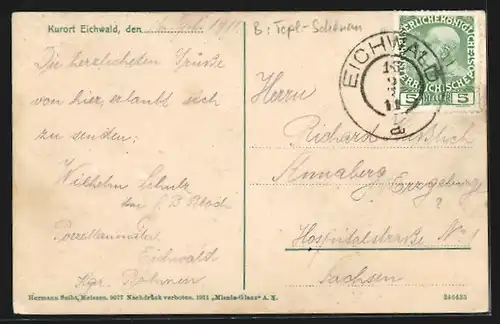 Kurort Eichwald, den Juli 1911.
B: Tepl-Schönau
Die herzlichsten Grüße
von hier, erlaubt sich
zu senden,
Wilhelm Schulz
Porzellanmaler
Eichwald
Kgr. Böhmen
KAISERLICHE KÖNIGLICHE
ÖSTERREICHISCHE POST
5 HELLER 5
EICHWALD
Herrn
Richard
Annaberg Erzgebirg
Hospitalstraße No 1
Sachsen
Hermann Seibt, Meissen. 9077 Nachdruck verboten. 1911 „Misnia-Glanz" A. X.